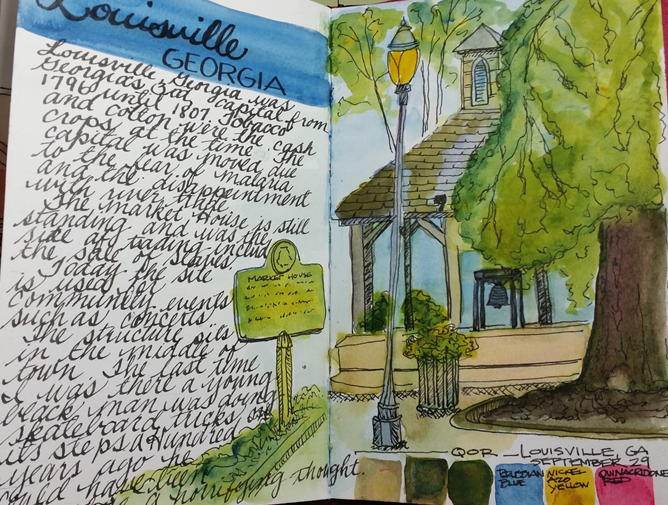 Louisville
GEORGIA
Louisville Georgia was
Georgia's 3rd capital from
1796 until 1807. Tobacco
and cotton were the cash
crops at the time. The
capital was moved due
to the fear of malaria
and the disappointment
with river trade.
The Market House is still
standing and was the
site of trading
the sale of slaves.
Today the site
is used for
community events
such as concerts.
The structure sits
in the middle of
town. The last time
I was there a young
black man was doing
skateboard tricks on
its steps. A Hundred
years ago he
could have been
a horrifying thought.
MARKET HOUSE
QOR - LOUISVILLE, GA
SEPTEMBER 29
PRUSSIAN
BLUE
NICKEL
AZO
YELLOW
QUINACRIDONE
RED